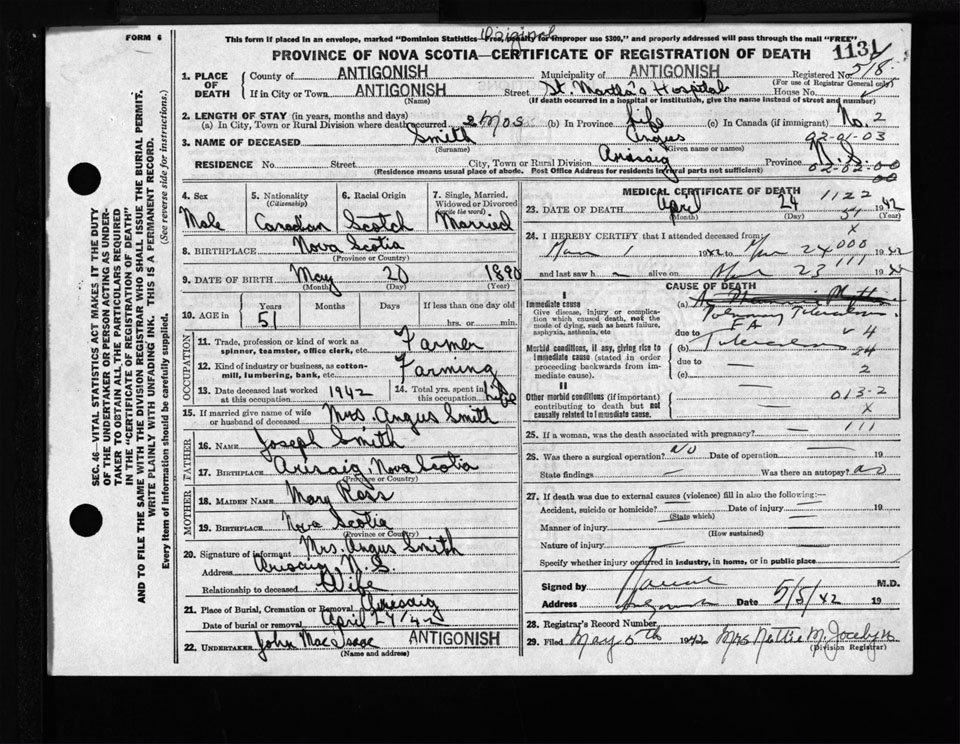 FORM 6
This form if placed in an envelope, marked "Dominion Statistics Free, penalty for improper use $300," and properly addressed will pass through the mail "FREE"
Original
PROVINCE OF NOVA SCOTIA—CERTIFICATE OF REGISTRATION OF DEATH
1131
518
1. PLACE OF DEATH
County of ANTIGONISH Municipality of ANTIGONISH Registered No.
(For use of Registrar General only)
If in City or Town ANTIGONISH Street St. Martha's Hospital House No.
(Name) (If death occurred in a hospital or institution, give the name instead of street and number)
2. LENGTH OF STAY (in years, months and days)
(a) In City, Town or Rural Division where death occurred 2 mos (b) In Province life (c) In Canada (if immigrant) No. 2
3. NAME OF DECEASED Smith Angus 92-01-03
(Surname) (Given name or names)
RESIDENCE No. Street City, Town or Rural Division Arisaig Province N.S.
02-02-00
00
(Residence means usual place of abode. Post Office Address for residents in rural parts not sufficient)
4. Sex Male
5. Nationality (Citizenship) Canadian
6. Racial Origin Scotch
7. Single, Married, Widowed or Divorced (write the word) Married
8. BIRTHPLACE Nova Scotia
(Province or Country)
9. DATE OF BIRTH May 20 1890
(Month) (Day) (Year)
10. AGE in Years Months Days If less than one day old
51 hrs. or min.
OCCUPATION
11. Trade, profession or kind of work as spinner, teamster, office clerk, etc. Farmer
12. Kind of industry or business, as cotton-mill, lumbering, bank, etc. Farming
13. Date deceased last worked at this occupation 1942
14. Total yrs. spent in this occupation Life
15. If married give name of wife or husband of deceased Mrs. Angus Smith
FATHER
16. NAME Joseph Smith
17. BIRTHPLACE Arisaig Nova Scotia
(Province or Country)
MOTHER
18. MAIDEN NAME Mary Ross
19. BIRTHPLACE Nova Scotia
(Province or Country)
20. Signature of informant Mrs. Angus Smith
Address Arisaig N.S.
Relationship to deceased Wife
21. Place of Burial, Cremation or Removal Arisaig
Date of burial or removal April 27/42
22. UNDERTAKER John MacIsaac ANTIGONISH
(Name and address)
MEDICAL CERTIFICATE OF DEATH
1122
23. DATE OF DEATH April 24 1942
(Month) (Day) (Year)
54
x
24. I HEREBY CERTIFY that I attended deceased from:
1 1942 to 24 1942
000
111
and last saw h alive on 23 1942
CAUSE OF DEATH
I
Immediate cause (a)
Give disease, injury or complication which caused death, not the mode of dying, such as heart failure, asphyxia, asthenia, etc
Pulmonary Tuberculosis
due to
Morbid conditions, if any, giving rise to immediate cause (stated in order proceeding backwards from immediate cause).
(b) Tuberculosis
4
24
due to
2
(c)
II
Other morbid conditions (if important) contributing to death but not causally related to immediate cause.
013-2
x
111
25. If a woman, was the death associated with pregnancy?
26. Was there a surgical operation? NO Date of operation 19
State findings Was there an autopsy? no
27. If death was due to external causes (violence) fill in also the following:—
Accident, suicide or homicide? Date of injury 19
(State which)
Manner of injury
(How sustained)
Nature of injury
Specify whether injury occurred in industry, in home, or in public place
Signed by M.D.
Address Antigonish Date 5/5/42 19
28. Registrar's Record Number
29. Filed May 5th 1942 Mrs Nettie M. Jocelyn
(Division Registrar)
SEC. 46—VITAL STATISTICS ACT MAKES IT THE DUTY
OF THE UNDERTAKER OR PERSON ACTING AS UNDER-
TAKER TO OBTAIN ALL THE PARTICULARS REQUIRED
IN THE "CERTIFICATE OF REGISTRATION OF DEATH"
AND TO FILE THE SAME WITH THE DIVISION REGISTRAR WHO SHALL ISSUE THE BURIAL PERMIT.
WRITE PLAINLY WITH UNFADING INK. THIS IS A PERMANENT RECORD.
Every item of information should be carefully supplied. (See reverse side for instructions.)